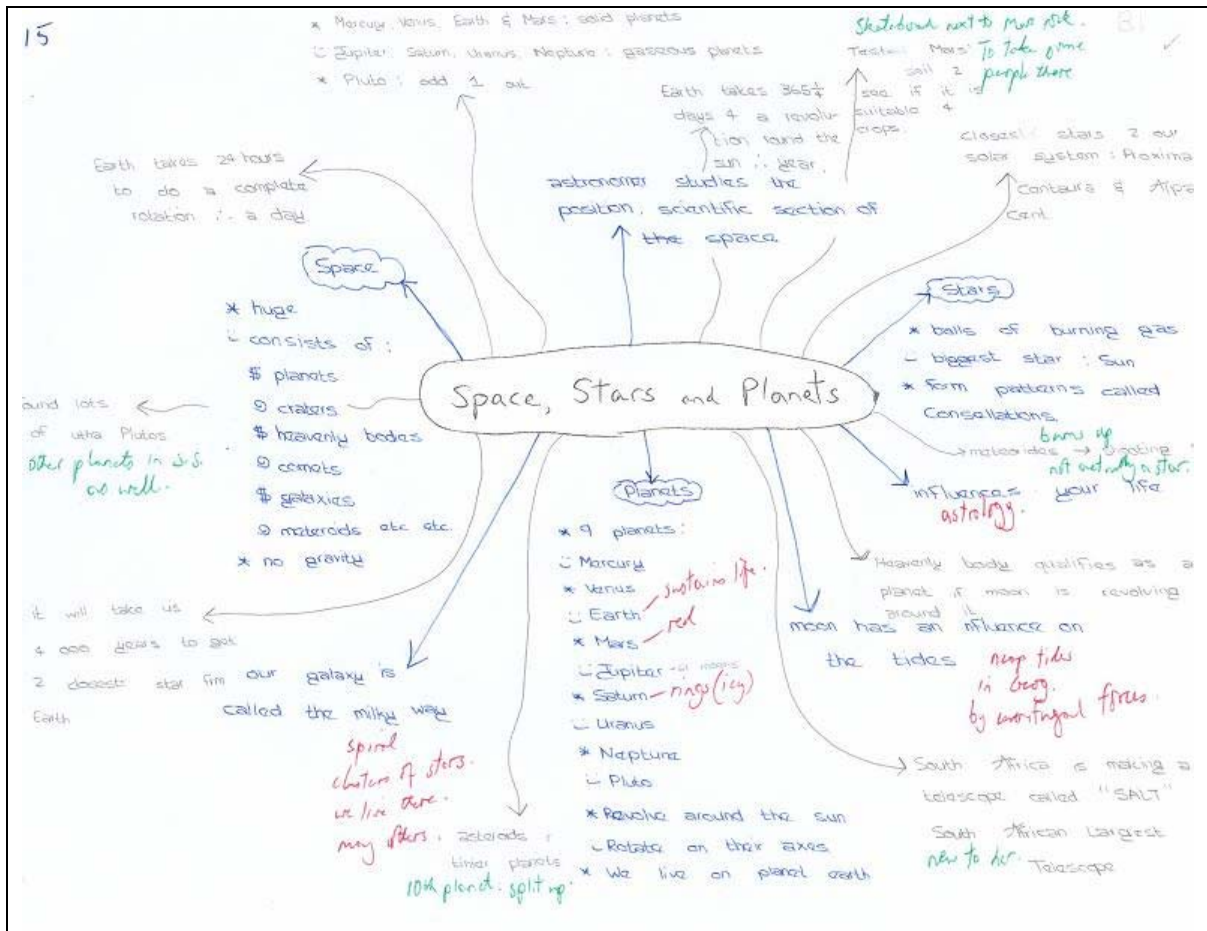 15
* Mercury, Venus, Earth & Mars : solid planets
Jupiter, Saturn, Uranus, Neptune : gaseous planets
* Pluto : odd 1 out
Skateboard next to Mars rock.
To take some
people there
Mars'
soil 2
see if it is
suitable 4
crops.
Earth takes 365¼
days 4 a revolu-
tion round the
sun ∴ year.
closest stars 2 our
solar system : Proxima
Centaurs &
Cent.
Earth takes 24 hours
to do a complete
rotation ∴ a day
astronomer studies the
position, scientific section of
the space
Space
* huge
consists of :
$ planets
craters
$ heavenly bodes
comets
$ galaxies
meteroids etc etc.
* no gravity
Stars
* balls of burning gas
biggest star : Sun
* form patterns called
Consellations.
Space, Stars and Planets
ound lots
of Plutos
other planets in S.S.
as well.
burns up
meteorides →
not actually a star.
influences your life
astrology.
Planets
* 9 planets:
Mercury
* Venus
Earth sustains life.
* Mars red
Jupiter moons
* Saturn rings (icy)
Uranus
* Neptune
Pluto
* Revolve around the sun
Rotate on their axes
* We live on planet earth
Heavenly body qualifies as a
planet if moon is revolving
around it
moon has an nfluence on
the tides neap tides
in
by forces.
it will take us
4 000 years to get
2 closest star frm
Earth
our galaxy is
called the milky way
spiral
clusters of stars.
we live there.
many others.
asterods :
tinier planets
10th planet splitting.
South Africa is making a
telescope called "SALT"
South African Largest
Telescope
new to her.